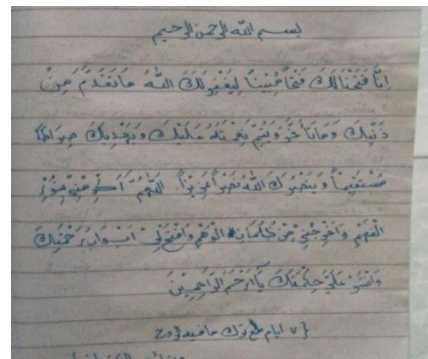 بسم الله الرحمن الرحيم
انَّا فَتَحْنَا لَكَ فَتْحًا مُبِينًا لِيَغْفِرَ لَكَ اللَّهُ مَا تَقَدَّمَ مِنْ
ذَنْبِكَ وَمَا تَأَخَّرَ وَيُتِمَّ نِعْمَتَهُ عَلَيْكَ وَيَهْدِيَكَ صِرَاطًا
مُسْتَقِيمًا وَيَنْصُرَكَ اللَّهُ نَصْرًا عَزِيزًا. اللَّهُمَّ أَكْرِمْنِي
الْفَهْمِ وَأَخْرِجْنِي مِنْ ظُلُمَاتِ الْوَهْمِ وَافْتَحْ لِي أَبْوَابَ رَحْمَتِكَ
وَانْشُرْ عَلَيَّ حِكْمَتَكَ يَا أَرْحَمَ الرَّاحِمِينَ
٧ ايام